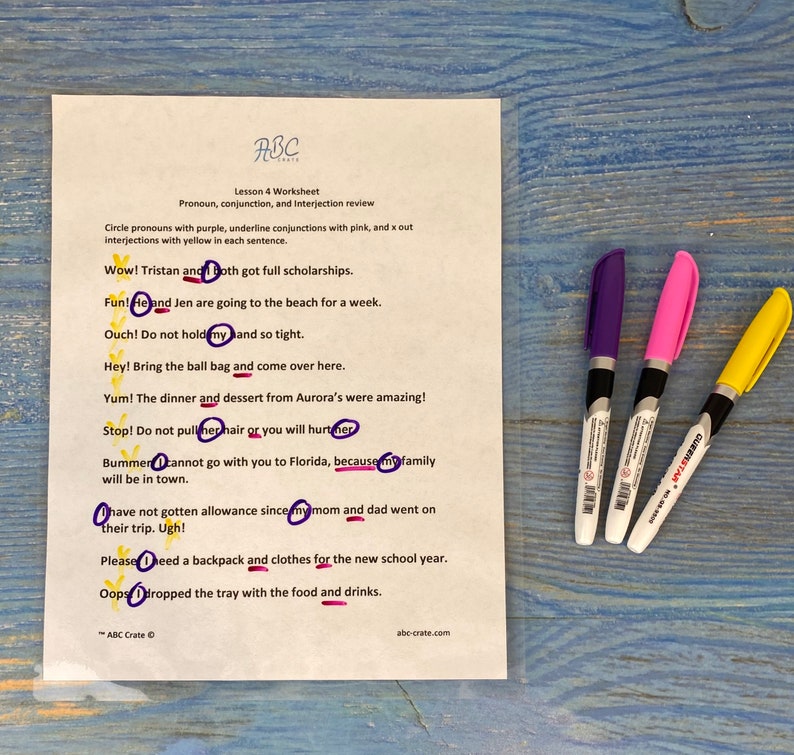 ABC
CRATE
Lesson 4 Worksheet
Pronoun, conjunction, and Interjection review
Circle pronouns with purple, underline conjunctions with pink, and x out
interjections with yellow in each sentence.
Wow! Tristan and I both got full scholarships.
Fun! He and Jen are going to the beach for a week.
Ouch! Do not hold my hand so tight.
Hey! Bring the ball bag and come over here.
Yum! The dinner and dessert from Aurora's were amazing!
Stop! Do not pull her hair or you will hurt her.
Bummer, I cannot go with you to Florida, because my family
will be in town.
I have not gotten allowance since my mom and dad went on
their trip. Ugh!
Please, I need a backpack and clothes for the new school year.
Oops! I dropped the tray with the food and drinks.
™ ABC Crate ©
abc-crate.com
QUEENSTAR
NO.QS-9500